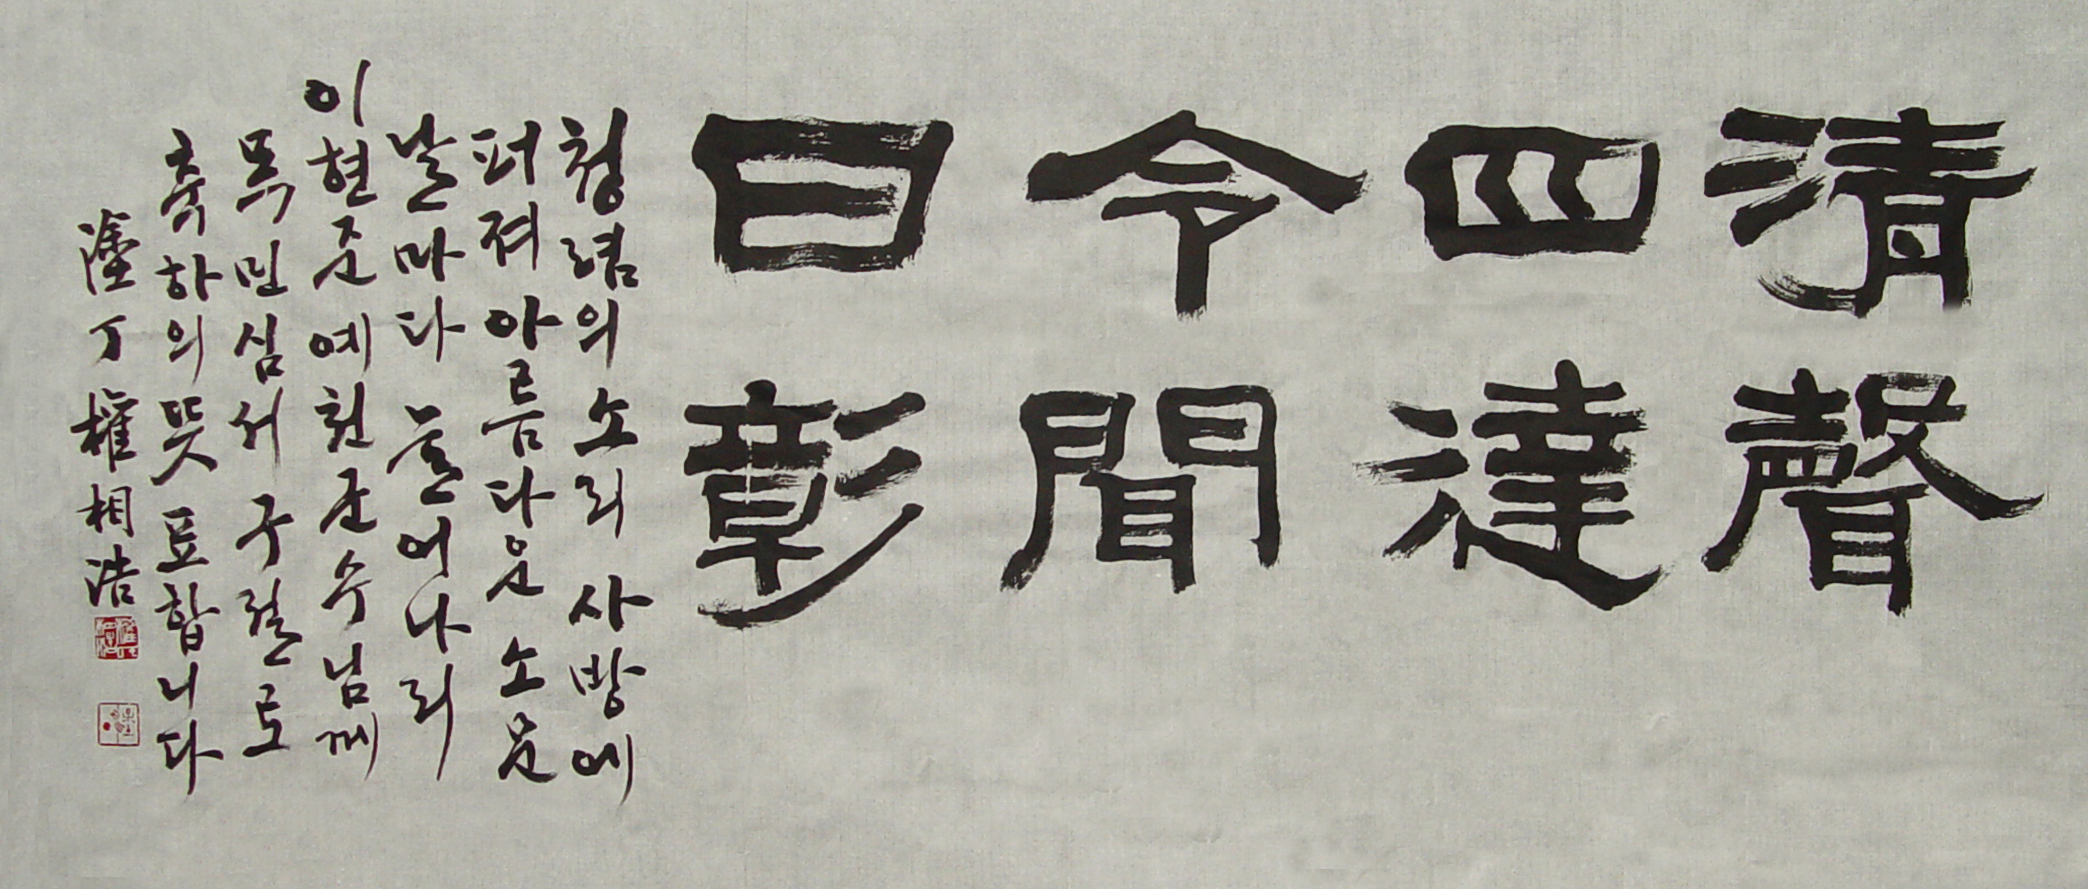 清聲
四達
令聞
日彰
청렴의 소리 사방에
퍼져 아름다운 소문
날마다 늘어나리
이현준 예천군수님께
목민심서 구절로
축하의 뜻 표합니다
塗丁 權相浩